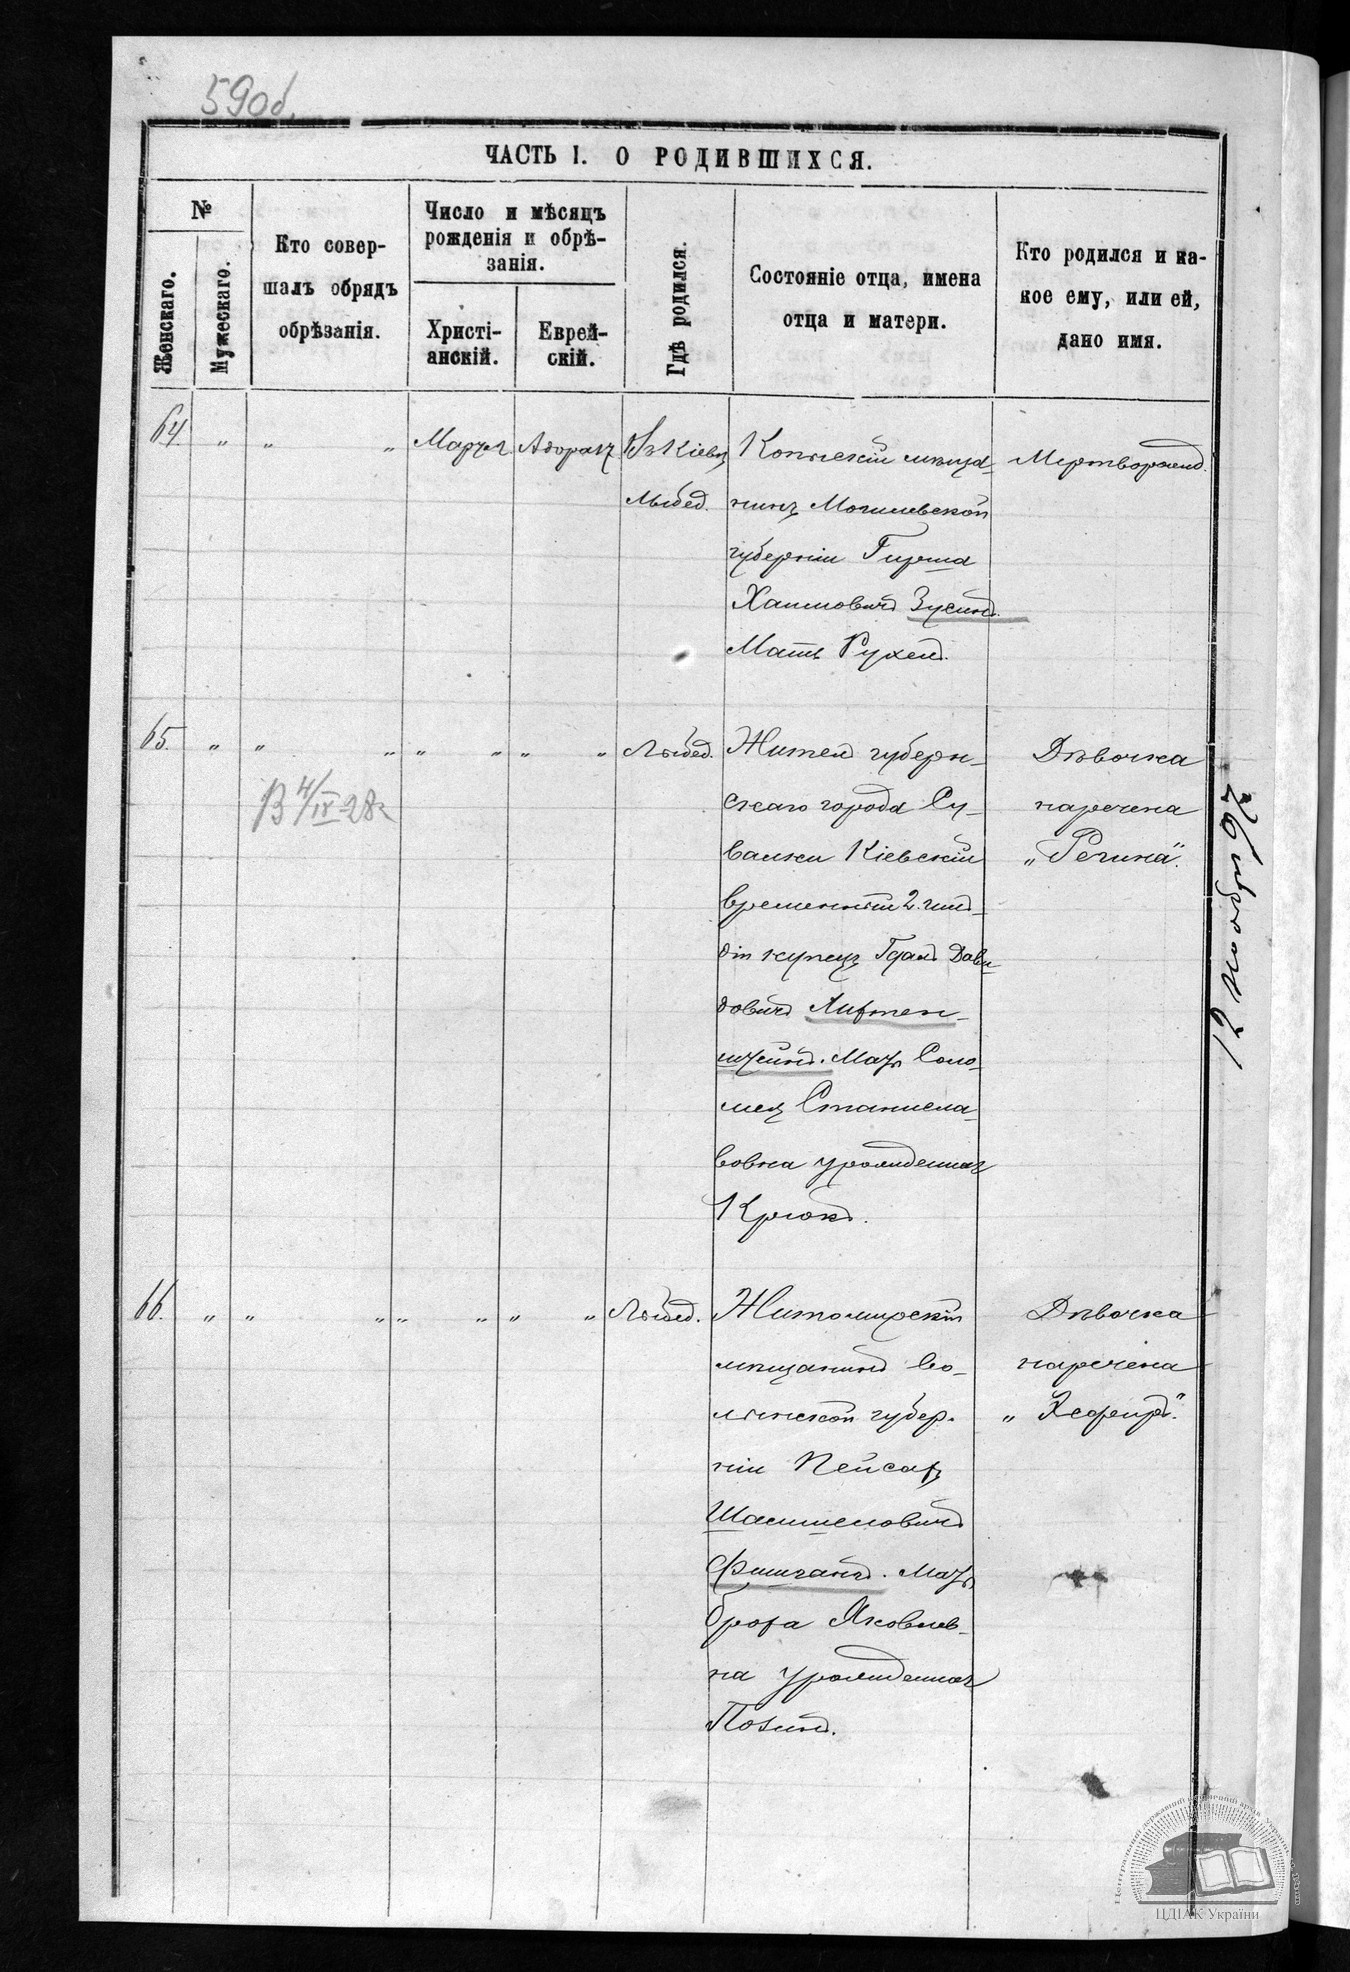 590б.
ЧАСТЬ I. О РОДИВШИХСЯ.
№
Женскаго.
Мужескаго.
Кто совер-
шалъ обрядъ
обрѣзанія.
Число и мѣсяцъ
рожденія и обрѣ-
занія.
Христі-
анскій.
Еврей-
скій.
Гдѣ родился.
Состояніе отца, имена
отца и матери.
Кто родился и ка-
кое ему, или ей,
дано имя.
64 " " " Въ Кіевѣ
Лыбед.
Копысскій мѣща-
нинъ Могилевской
губерніи Гирша
Хаимовичъ Зусинъ.
Мать Рухля.
Мертворожд.
65. " " " " " " " Лыбед.
В 4/IX-28г
Жители губерн-
скаго города Су-
валки Кіевскій
временный 2. гил-
діи купецъ Давы-
довичъ Лифтен-
штейнъ. Мать Соло-
мея Станисла-
вовна урожденная
Крюкъ.
Дѣвочка
наречена
„Регина".
66. " " " " " " " Лыбед.
Житомирскій
мѣщанинъ Во-
лынской губер-
ніи Пейсахъ
Шамшеловичъ
Фишганъ. Мать
Яковлев-
на урожденная
Позинъ.
Дѣвочка
наречена
„Эсфирь".
ЦДІАК України